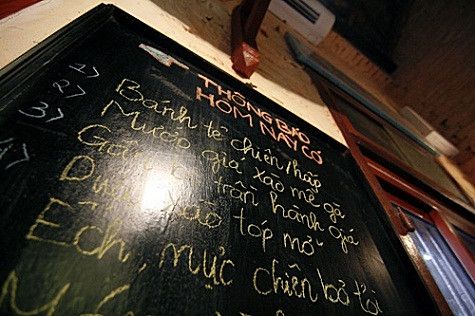 THÔNG BÁO
HÔM NAY CÓ
1> Bánh tẻ chiên/hấp
2> Mướp giá xào mề gà
3> trần hành giá
4> xào tóp mỡ
Ếch, mực chiên bơ tỏi